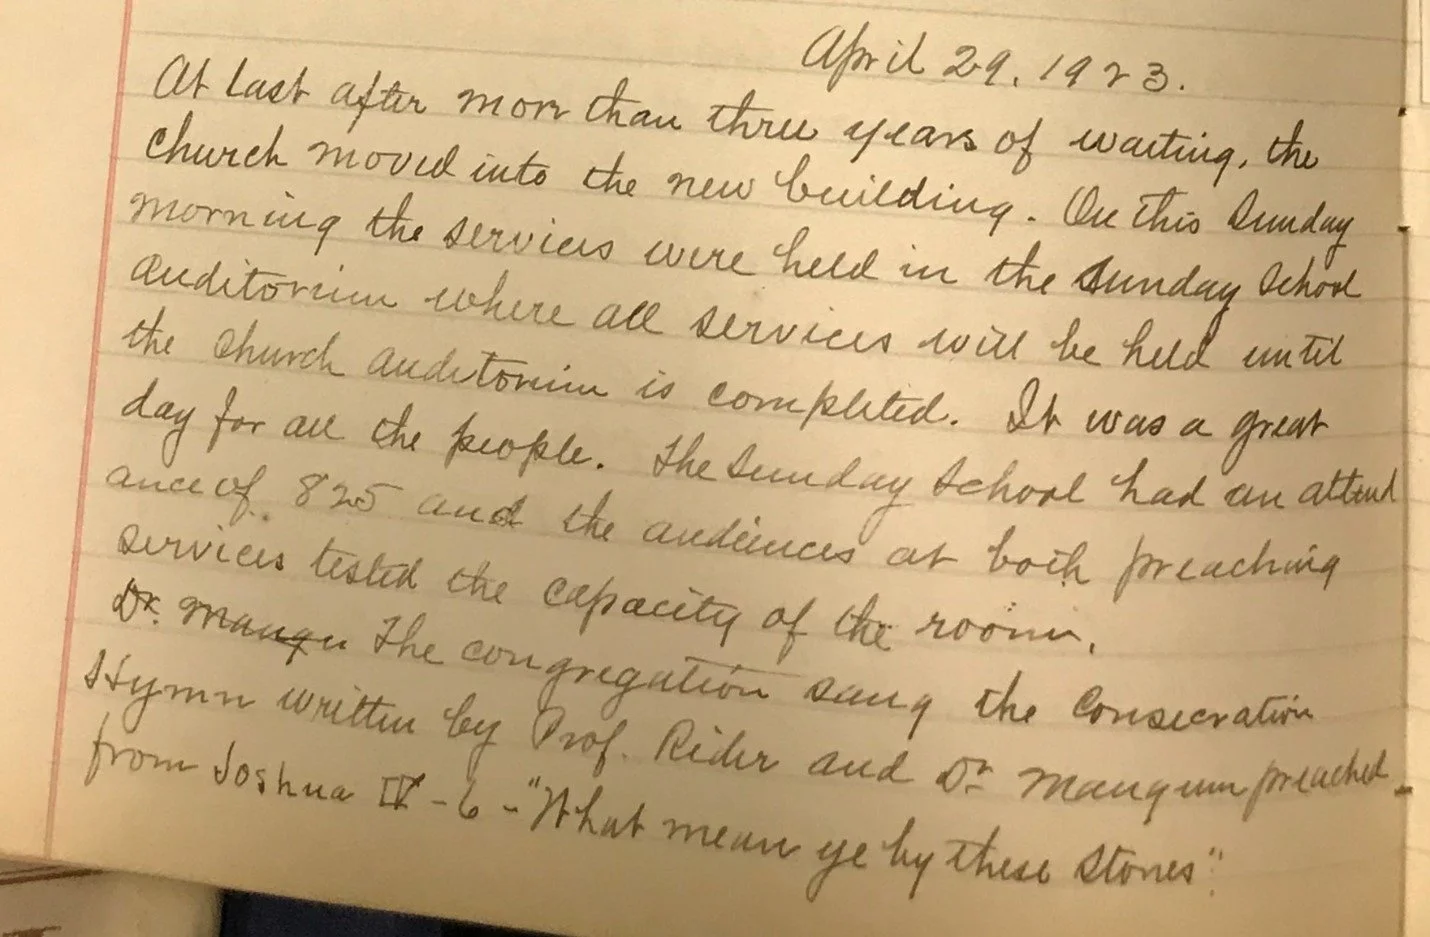 April 29, 1923.
At last after more than three years of waiting, the
church moved into the new building. On this Sunday
morning the services were held in the Sunday School
auditorium where all services will be held until
the church auditorium is completed. It was a great
day for all the people. The Sunday School had an attend
ance of 825 and the audiences at both preaching
services tested the capacity of the room.
Dr. Mangu The congregation sang the Consecration
Hymn written by Prof. Rider and Dr. Mangum preached
from Joshua IV - 6 - "What mean ye by these Stones".